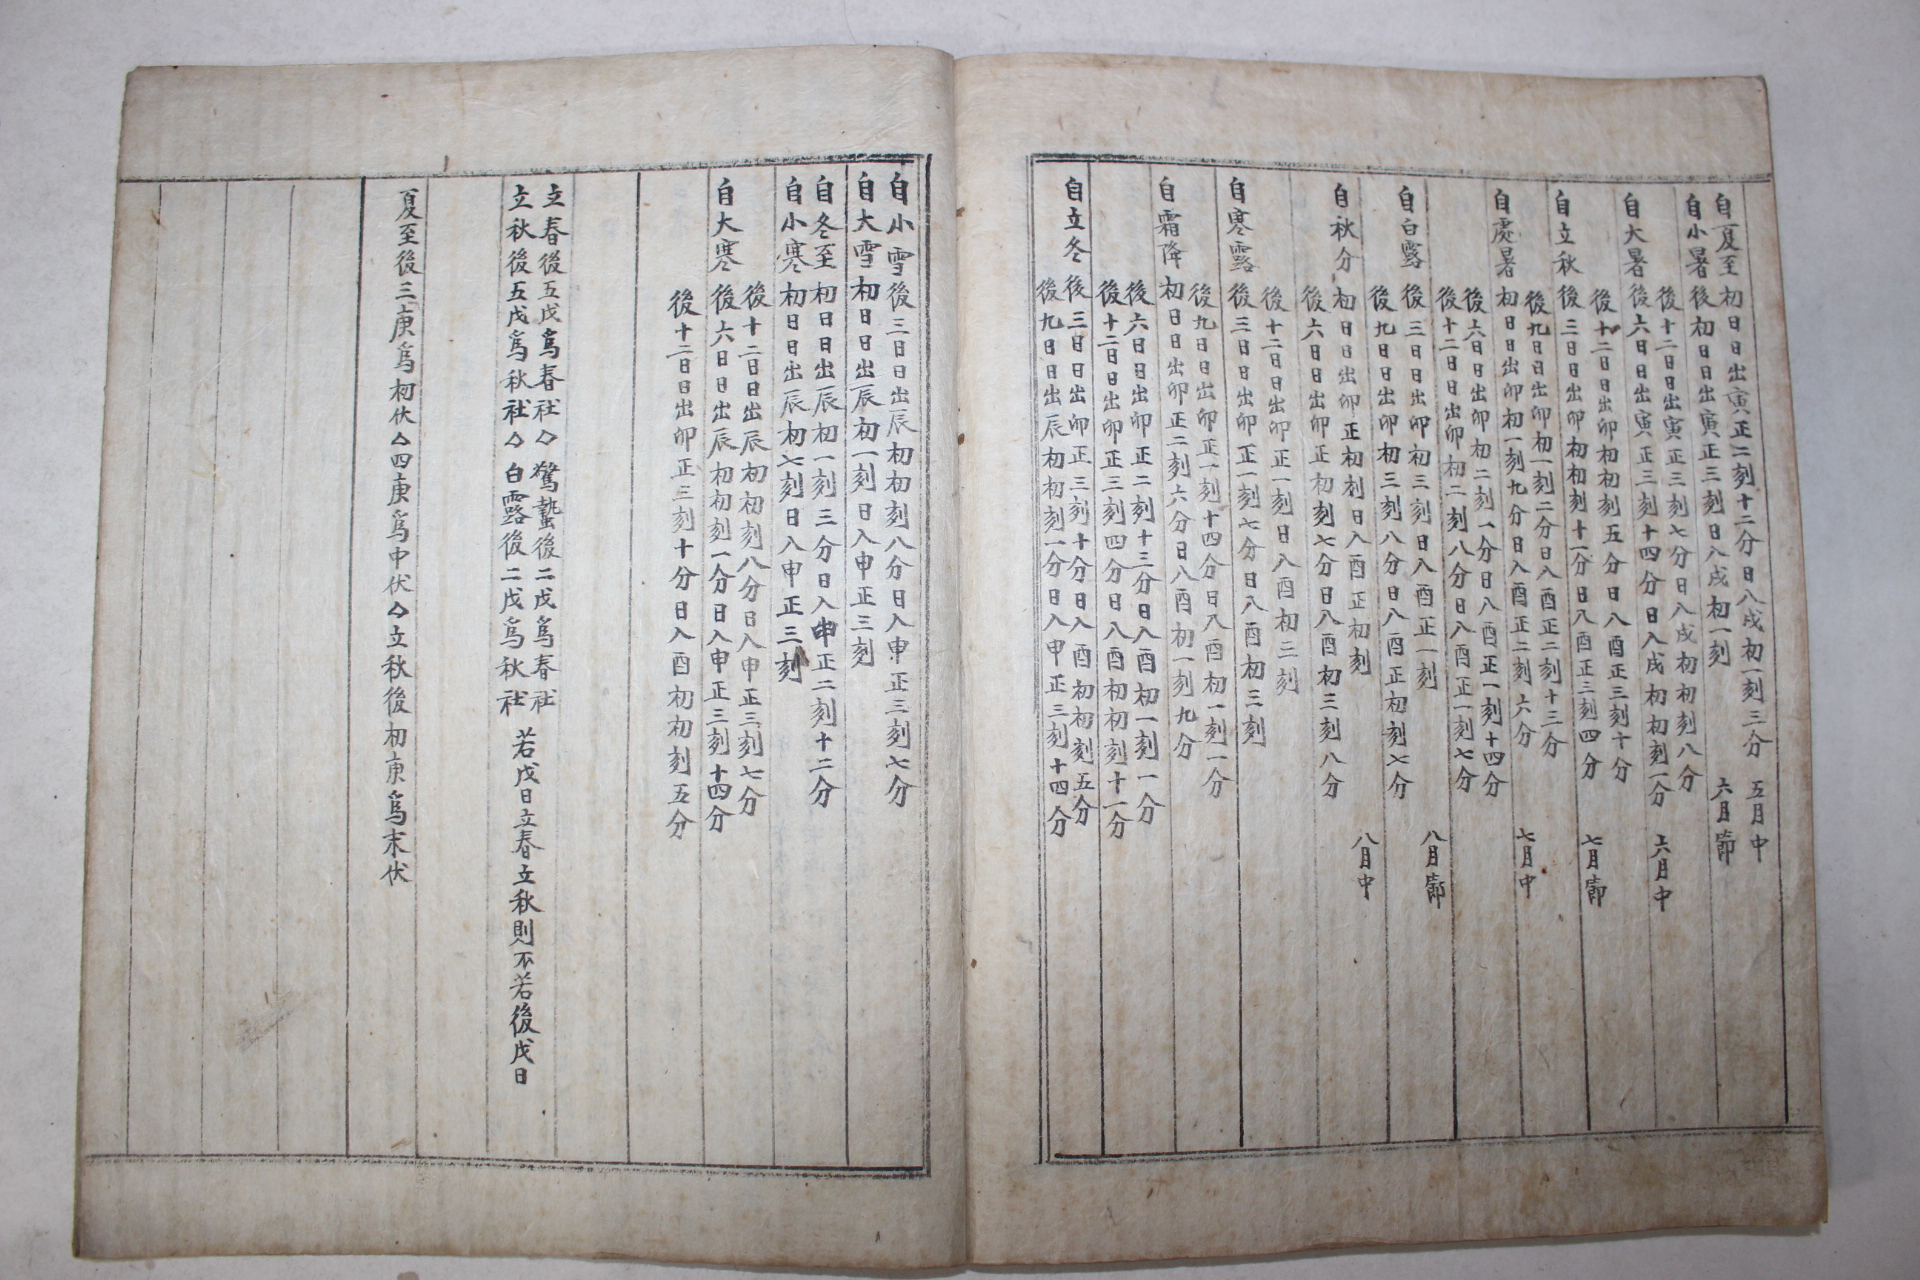 自夏至初日日出寅正二刻十二分日入戌初一刻三分 五月中
自小暑後初日日出寅正三刻日入戌初一刻 六月節
後十二日日出寅正三刻七分日入戌初初刻八分
自大暑後六日日出寅正三刻十四分日入戌初初刻一分 六月中
後十二日日出卯初初刻五分日入酉正三刻十分
自立秋後三日日出卯初初刻十一分日入酉正三刻四分 七月節
後九日日出卯初一刻二分日入酉正二刻十三分
自處暑初日日出卯初一刻九分日入酉正二刻六分 七月中
後六日日出卯初二刻一分日入酉正一刻十四分
後十二日日出卯初二刻八分日入酉正一刻七分
自白露後三日日出卯初三刻日入酉正一刻 八月節
後九日日出卯初三刻八分日入酉正初刻七分
自秋分初日日出卯正初刻日入酉正初刻 八月中
後六日日出卯正初刻七分日入酉初三刻八分
後十二日日出卯正一刻日入酉初三刻
自寒露後三日日出卯正一刻七分日入酉初三刻
後九日日出卯正一刻十四分日入酉初一刻一分
自霜降初日日出卯正二刻六分日入酉初一刻九分
後六日日出卯正二刻十三分日入酉初一刻一分
後十二日日出卯正三刻四分日入酉初初刻十一分
自立冬後三日日出卯正三刻十分日入酉初初刻五分
後九日日出辰初初刻一分日入申正三刻十四分
自小雪後三日日出辰初初刻八分日入申正三刻七分
自大雪初日日出辰初一刻日入申正三刻
自冬至初日日出辰初一刻三分日入申正二刻十二分
自小寒初日日出辰初七刻日入申正三刻
後十二日日出辰初初刻八分日入申正三刻七分
自大寒後六日日出辰初初刻一分日入申正三刻十四分
後十二日日出卯正三刻十分日入酉初初刻五分
立春後五戊爲春社△驚蟄後二戊爲春社
立秋後五戊爲秋社△白露後二戊爲秋社
若戊日立春立秋則不若後戊日
夏至後三庚爲初伏△四庚爲中伏△立秋後初庚爲末伏